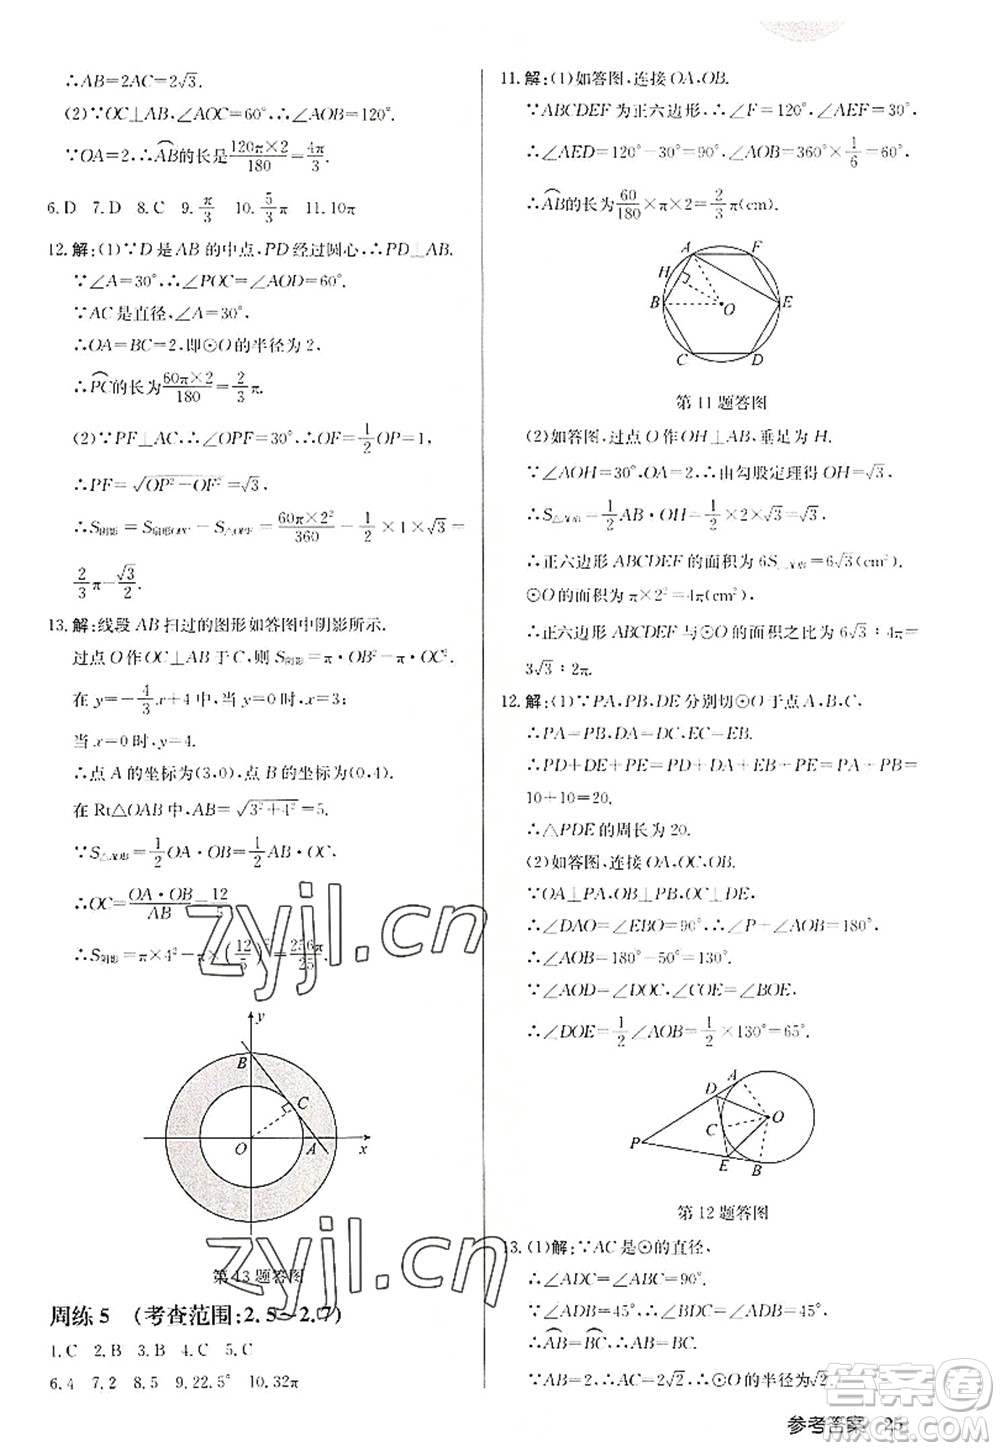 ∴AB=2AC=2√3.
(2)∵OC⊥AB,∠AOC=60°,∴∠AOB=120°.
∵OA=2,∴⌒AB的长是120π×2/180=4π/3.
6.D 7.D 8.C 9.π/3 10.5/3π 11.10π
12.解:(1)∵D是AB的中点,PD经过圆心,∴PD⊥AB.
∵∠A=30°,∴∠POC=∠AOD=60°.
∵AC是直径,∠A=30°,
∴OA=OB=BC=2,即⊙O的半径为2,
∴⌒PC的长为60π×2/180=2/3π.
(2)∵PF⊥AC,∴∠OPF=30°,∴OF=1/2OP=1,
∴PF=√(OP²-OF²)=√3,
∴S阴影=S扇形OPC-S△OPF=60π×2²/360-1/2×1×√3=
2/3π-√3/2.
13.解:线段AB扫过的图形如答图中阴影所示.
过点O作OC⊥AB于C,则S阴影=π·OB²-π·OC².
在y=-4/3x+4中,当y=0时,x=3;
当x=0时,y=4.
∴点A的坐标为(3,0),点B的坐标为(0,4).
在Rt△OAB中,AB=√(3²+4²)=5.
∵S△AOB=1/2OA·OB=1/2AB·OC,
∴OC=OA·OB/AB=12/5,
∴S阴影=π×4²-π×(12/5)²=256π/25.
y
B
C
O
A
x
第13题答图
周练5 (考查范围:2.5~2.7)
1.C 2.B 3.B 4.C 5.C
6.4 7.2 8.5 9.22.5° 10.32π
11.解:(1)如答图,连接OA,OB.
∵ABCDEF为正六边形,∴∠F=∠AEF=30°,
∴∠AED=120°-30°=90°,∠AOB=360°×1/6=60°,
∴⌒AB的长=60/180×π×2=2/3π(cm).
A
F
H
B
O
E
C
D
第11题答图
(2)如答图,过点O作OH⊥AB,垂足为H.
∵∠AOH=30°,OA=2,∴由勾股定理得OH=√3,
∴S△AOB=1/2AB·OH=1/2×2×√3=√3,
∴正六边形ABCDEF的面积为6S△AOB=6√3(cm²).
⊙O的面积为π×2²=4π(cm²),
∴正六边形ABCDEF与⊙O的面积之比为6√3:4π=
3√3:2π.
12.解:(1)∵PA,PB,DE分别切⊙O于点A,B,C,
∴PA=PB,DA=DC,EC=EB.
∴PD+DE+PE=PD+DA+EB+PE=PA+PB=
10+10=20.
∴△PDE的周长为20.
(2)如答图,连接OA,OC,OB.
∵OA⊥PA,OB⊥PB,OC⊥DE,
∴∠DAO=∠EBO=90°,∴∠P+∠AOB=180°,
∴∠AOB=180°-50°=130°.
∵∠AOD=∠DOC,∠COE=∠BOE,
∴∠DOE=1/2∠AOB=1/2×130°=65°.
A
D
C
O
P
E
B
第12题答图
13.(1)解:∵AC是⊙的直径,
∴∠ABC=∠ADC=90°.
∵∠ADB=45°,∴∠BDC=45°,
∴⌒AB=⌒BC,∴AB=BC,
∵AB=2,∴AC=2√2,∴⊙O的半径为√2.
参考答案 25
zyjl.cn
zyjl.cn
答案圈